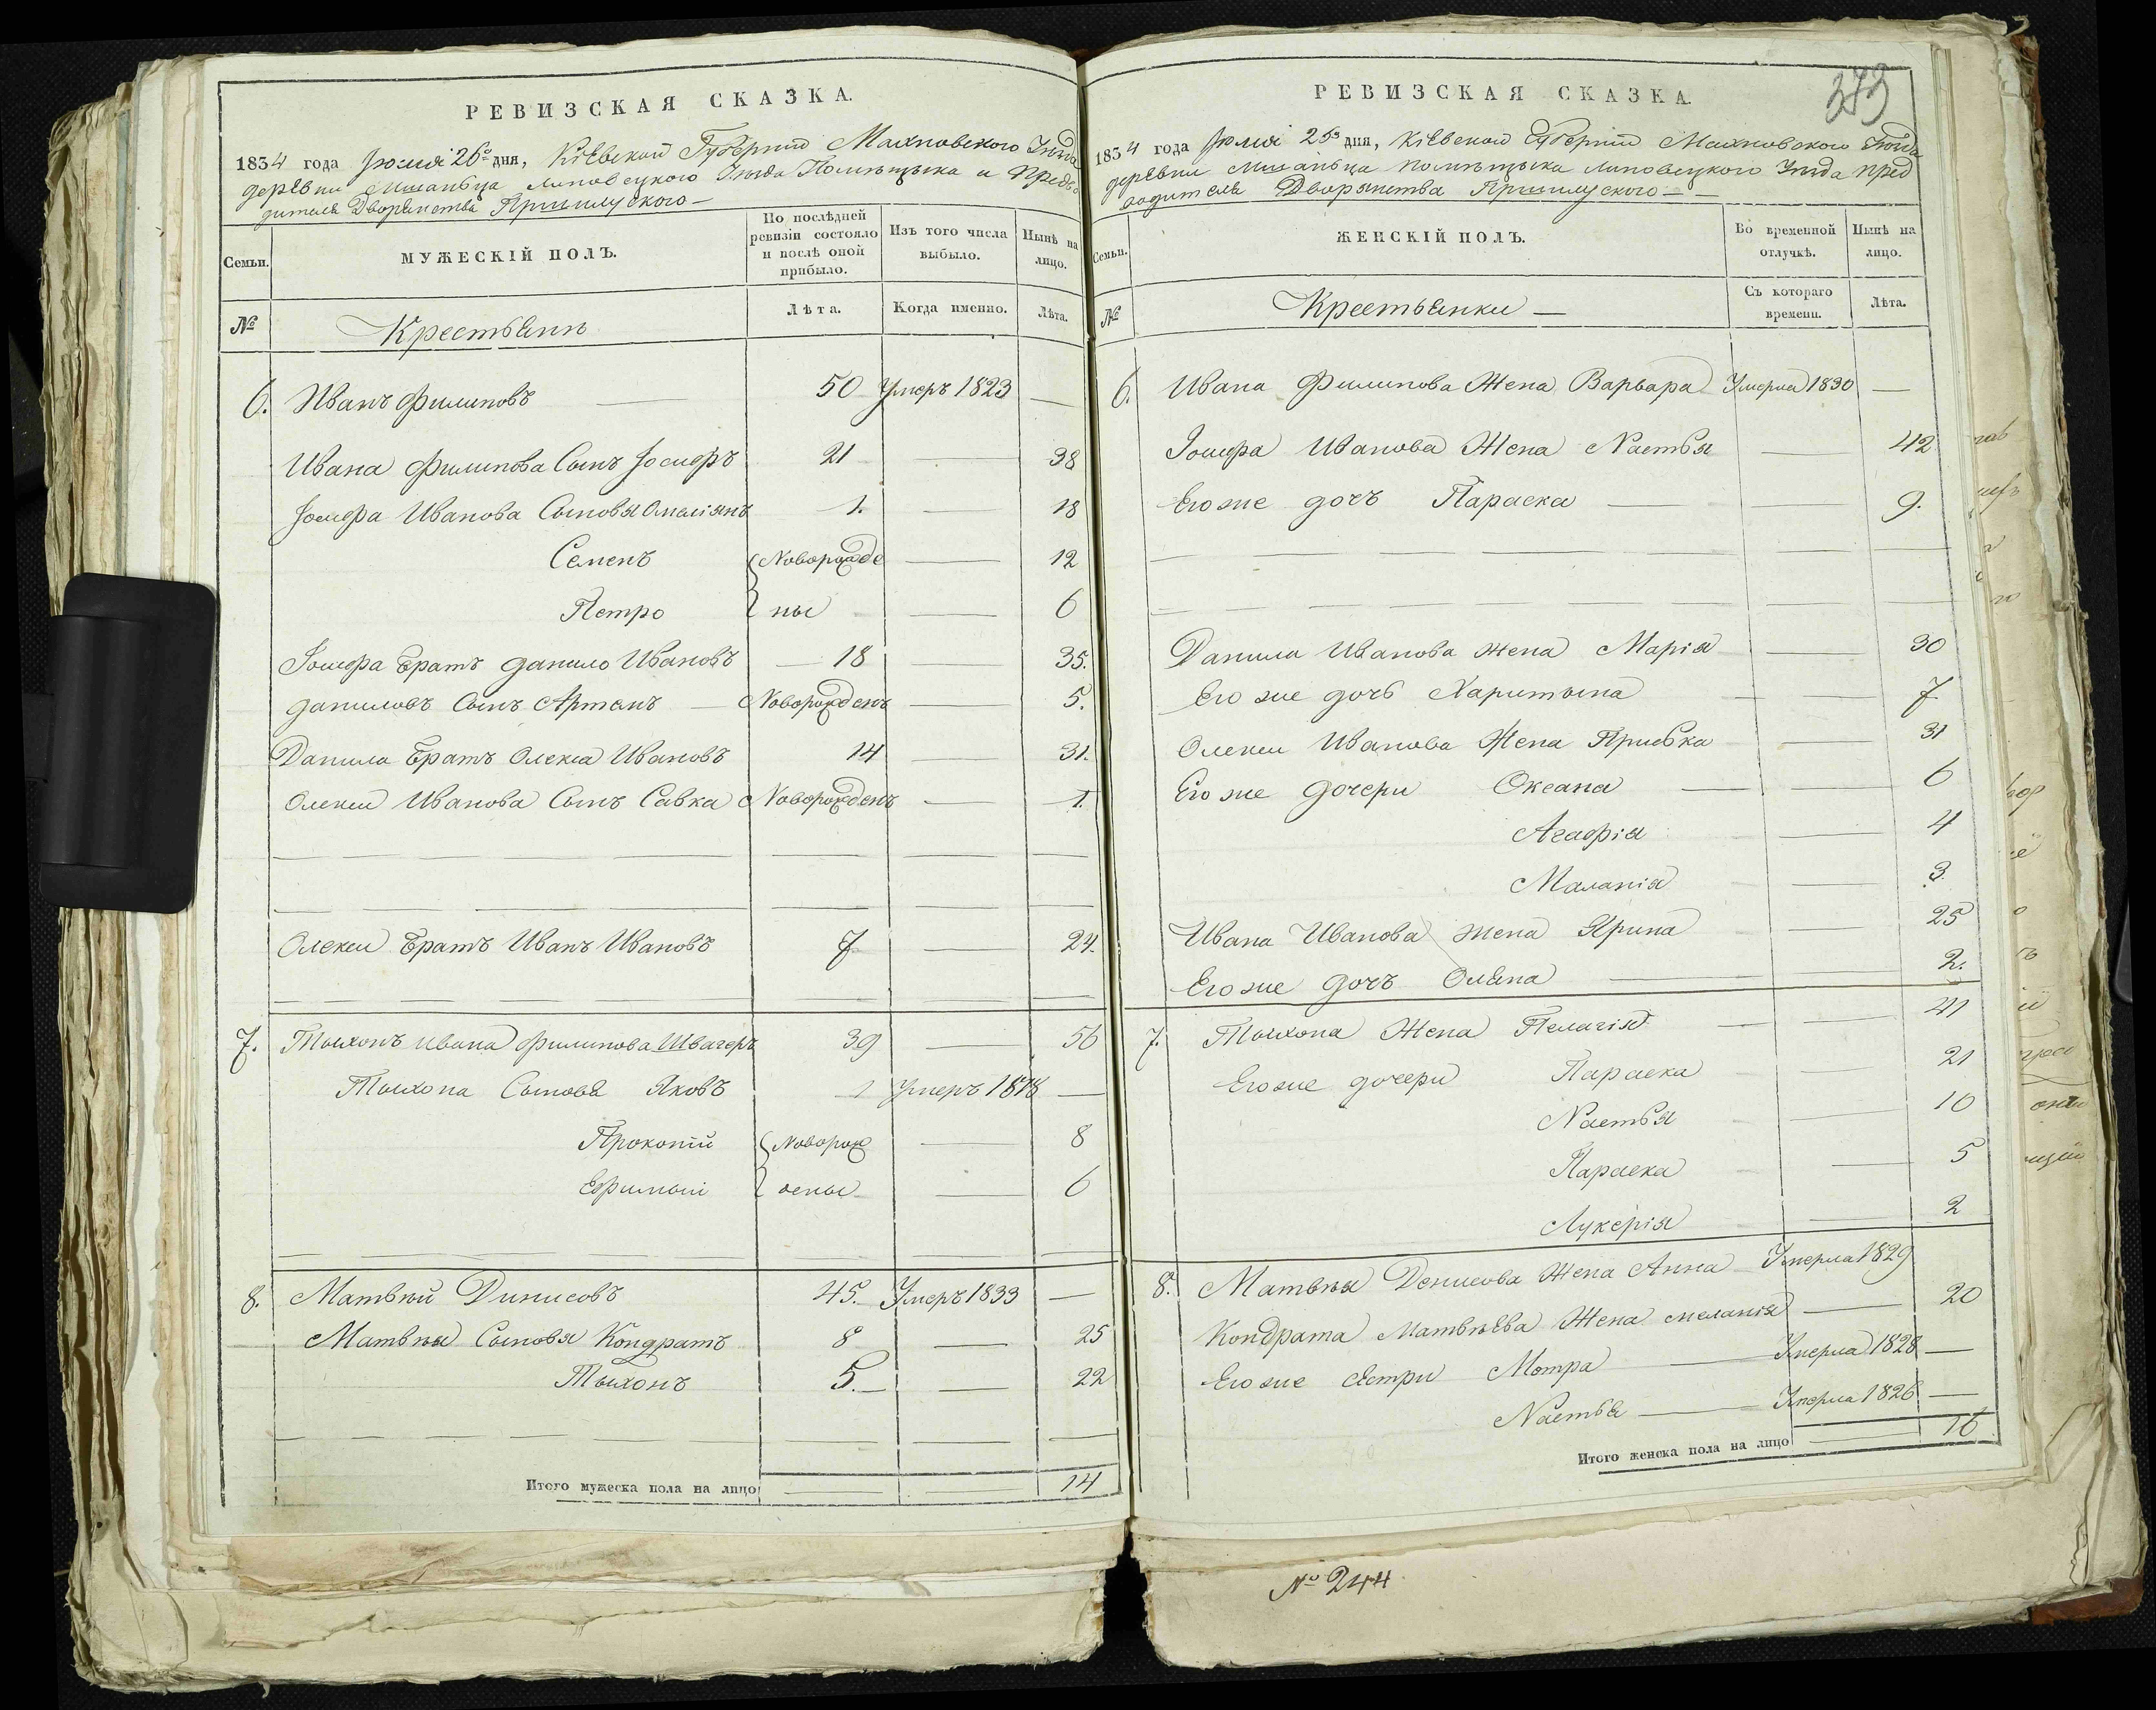 РЕВИЗСКАЯ СКАЗКА.
1834 года Июля 25го дня, Кіевской Губерніи Махновского Уѣзда
деревни Мшаньца Липовецкого Уѣзда Помѣщыка и Предво
дителя Дворянства Пршилуского —
Семьи.
МУЖЕСКІЙ ПОЛЪ.
По послѣдней ревизіи состояло и послѣ оной прибыло.
Изъ того числа выбыло.
Нынѣ на лицо.
№
Крестьянъ
Лѣта.
Когда именно.
Лѣта.
6. Иванъ Филиповъ — 50 Умеръ 1823 —
Ивана Филипова Сынъ Іосифъ 21 — 38
Іосифа Иванова Сыновья Омеліянъ 1. — 18
Семенъ Новорожде — 12
Петро ны — 6
Іосифа Братъ данило Ивановъ — 18 — 35.
даниловъ Сынъ Артемъ — Новорожденъ — 5.
Данила Братъ Олекса Ивановъ 14 — 31.
Олексы Иванова Сынъ Савка Новорожденъ — 1.
Олексы Братъ Иванъ Ивановъ 7 — 24.
7. Тыхонъ Ивана Филипова Швагеръ 39 — 56
Тыхона Сыновя Яковъ 1 Умеръ 1818 —
Прокопій Новорож — 8
Ефимый дены — 6
8. Матвѣй Динисовъ 45. Умеръ 1833 —
Матвѣя Сыновья Кондратъ 8 — 25
Тыхонъ 5. — 22
Итого мужеска пола на лицо 14
373
РЕВИЗСКАЯ СКАЗКА.
1834 года Іюля 25го дня, Кіевской Губерніи Махновского Уѣзда
деревни Мшаньца Помѣщыка Липовецкого Уѣзда пред
водителя Дворянства Пршилуского —
Семьи.
ЖЕНСКІЙ ПОЛЪ.
Во временной отлучкѣ.
Нынѣ на лицо.
№
Крестьянки —
Съ котораго времени.
Лѣта.
6. Ивана Филипова Жена Варвара Умерла 1830 —
Іосифа Иванова Жена Настья — 42
Его же дочъ Параска — 9.
Данила Иванова жена Марія — 30
Его же дочь Харитына — 7
Олексы Иванова Жена Приська — 31
Его же дочери Оксана — 6
Агафія — 4
Маланія — 3.
Ивана Иванова жена Ярина — 25
Его же дочъ Олена — 2.
7. Тыхона Жена Пелагія — 41
Его же дочери Параска — 21
Настья — 10
Параска — 5
Лукерія — 2
8. Матвѣя Денисова Жена Анна Умерла 1829
Кондрата Матвѣева Жена меланія — 20
Его же сестри Мотра — Умерла 1828 —
Настья — Умерла 1826 —
Итого женска пола на лицо 16
№ 244